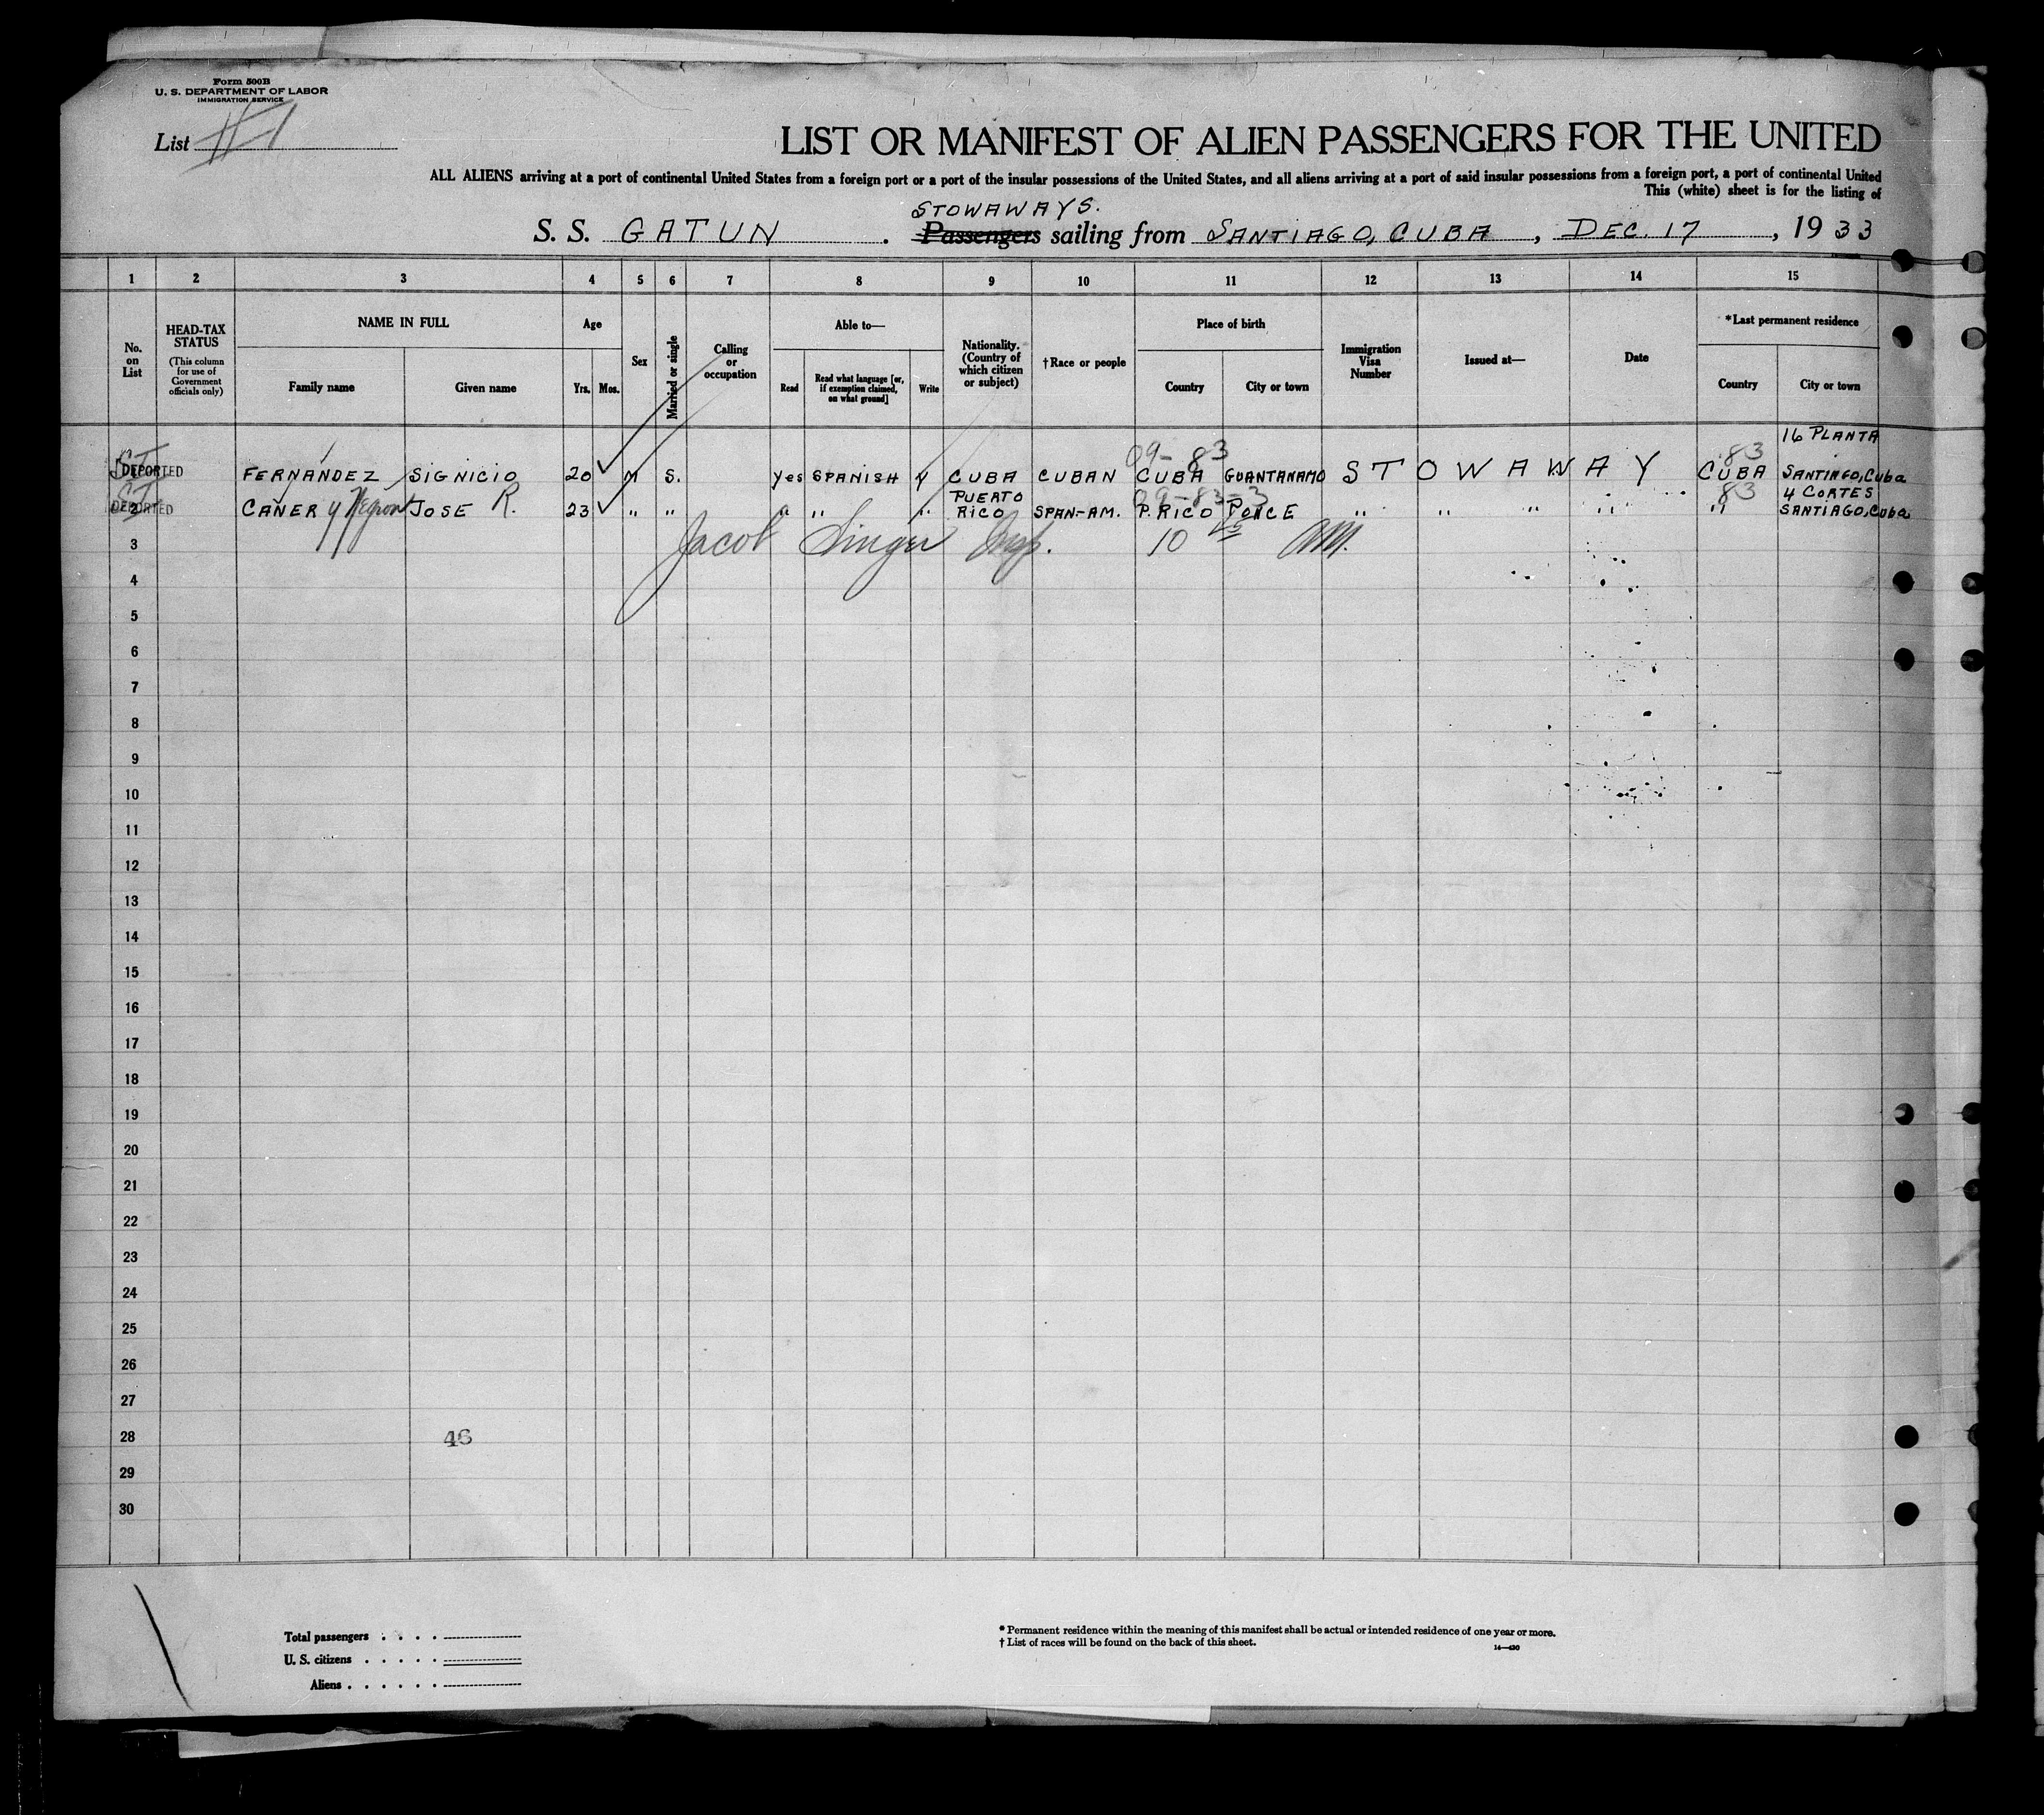 Form 500B
U. S. DEPARTMENT OF LABOR
IMMIGRATION SERVICE
List #1
LIST OR MANIFEST OF ALIEN PASSENGERS FOR THE UNITED
ALL ALIENS arriving at a port of continental United States from a foreign port or a port of the insular possessions of the United States, and all aliens arriving at a port of said insular possessions from a foreign port, a port of continental United
This (white) sheet is for the listing of
STOWAWAYS.
S. S. GATUN . Passengers sailing from SANTIAGO, CUBA , DEC. 17 , 1933
1 2 3 4 5 6 7 8 9 10 11 12 13 14 15
No. on List
HEAD-TAX STATUS
(This column for use of Government officials only)
NAME IN FULL
Family name
Given name
Age
Yrs.
Mos.
Sex
Married or single
Calling or occupation
Able to—
Read
Read what language [or, if exemption claimed, on what ground]
Write
Nationality. (Country of which citizen or subject)
†Race or people
Place of birth
Country
City or town
Immigration Visa Number
Issued at—
Date
*Last permanent residence
Country
City or town
16 PLANTA
09-83 83
ST DEPORTED FERNANDEZ SIGNICIO 20 M S. Yes SPANISH Y CUBA CUBAN CUBA GUANTANAMO STOWAWAY CUBA SANTIAGO, Cuba
PUERTO 09-83-3 83 4 CORTES
ST DEPORTED 2 CAÑER y Negron JOSE R. 23 " " " " " RICO SPAN-AM. P. RICO PONCE " " " " " SANTIAGO, Cuba
3 Jacob Singer Insp. 10 AM.
4
5
6
7
8
9
10
11
12
13
14
15
16
17
18
19
20
21
22
23
24
25
26
27
28 46
29
30
Total passengers . . . .
U. S. citizens . . . . .
Aliens . . . . . .
* Permanent residence within the meaning of this manifest shall be actual or intended residence of one year or more.
† List of races will be found on the back of this sheet.
14—430